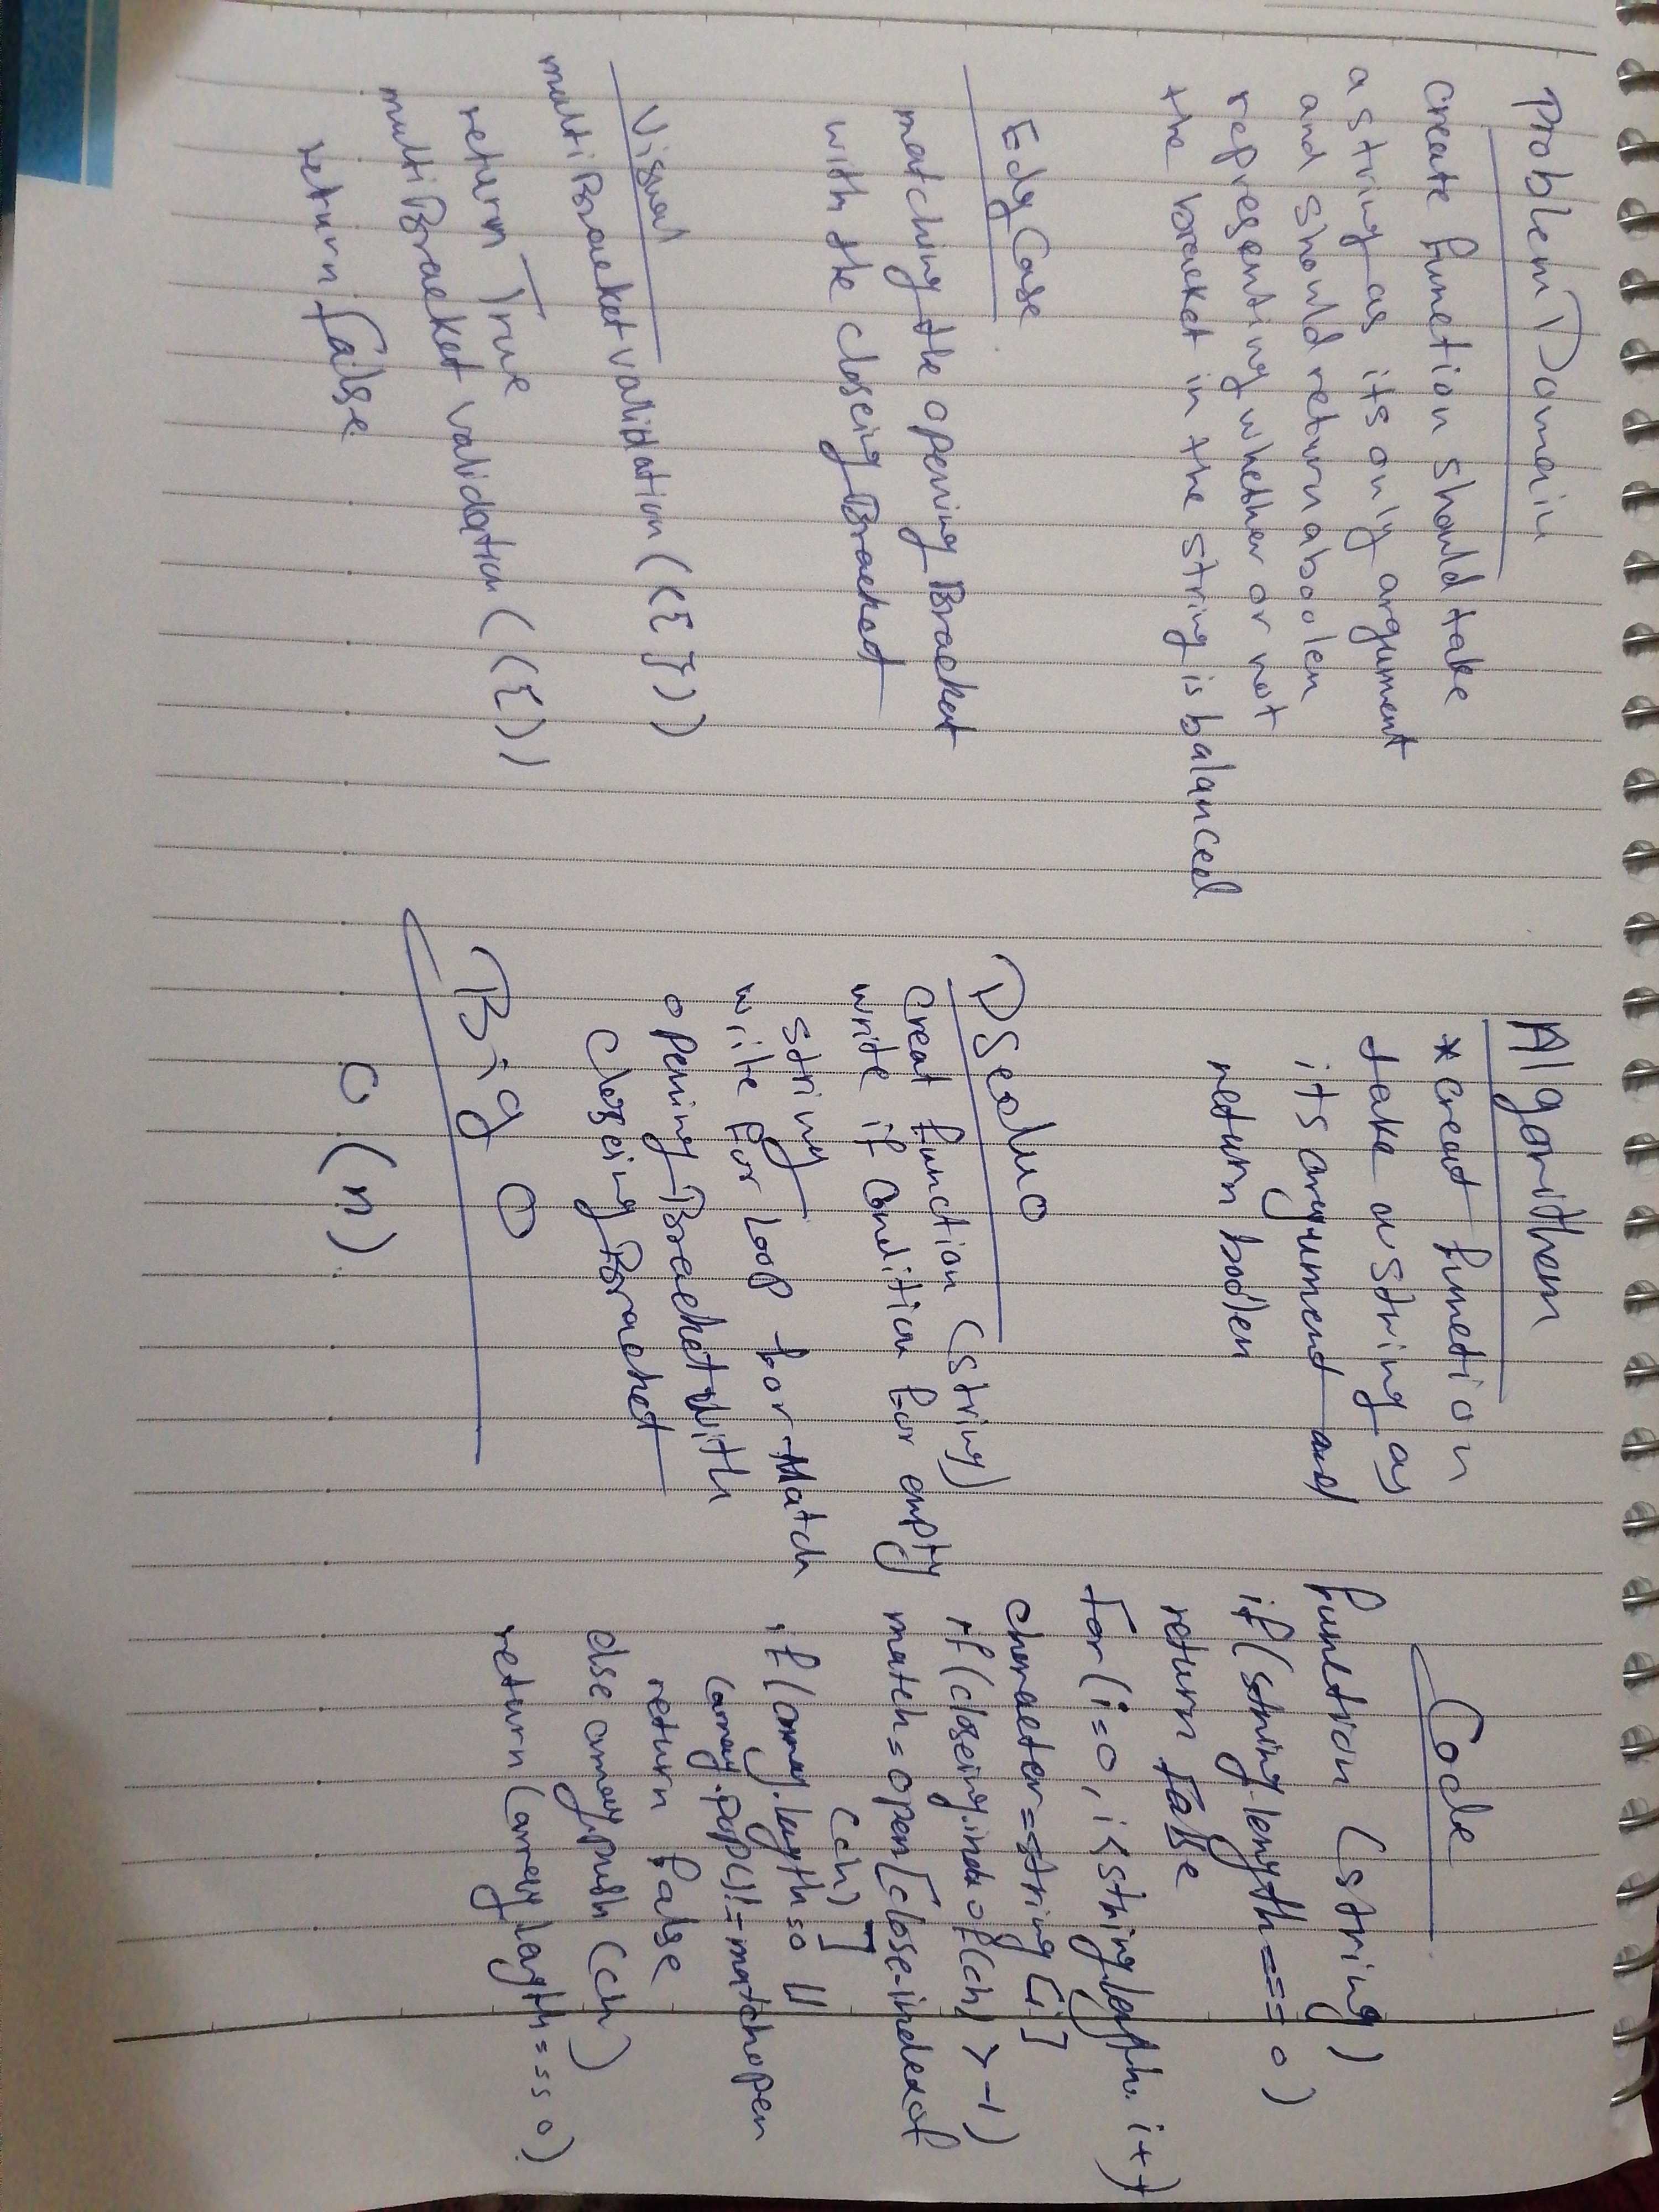 Problem Domain
Create function should take
a string as its only argument
and should return aboolen
representing whether or not
the bracket in the string is balanced
Edg Case
matching the opening Bracket
with the closeing Bracket
Visual
multiBracketvalidation ({ { } })
return True
multiBracket validation ( ( { ) )
return false
Algorithem
* creat function
take a string as
its argument and
return boolen
PSeduo
creat function (string)
write if condition for empty
string
write for loop for Match
opening Bracket with
closseing Bracket
Big O
O (n)
Code
function (string)
if (string.length === 0)
return False
for (i=0, i<string.length. i++
character = string [i]
if (closeing.index of (ch) > -1)
match = open [close.indexof
(ch) ]
if (array.length = 0 ||
(array.pop() != matchopen
return false
else array.push (ch)
return (array.length === 0)